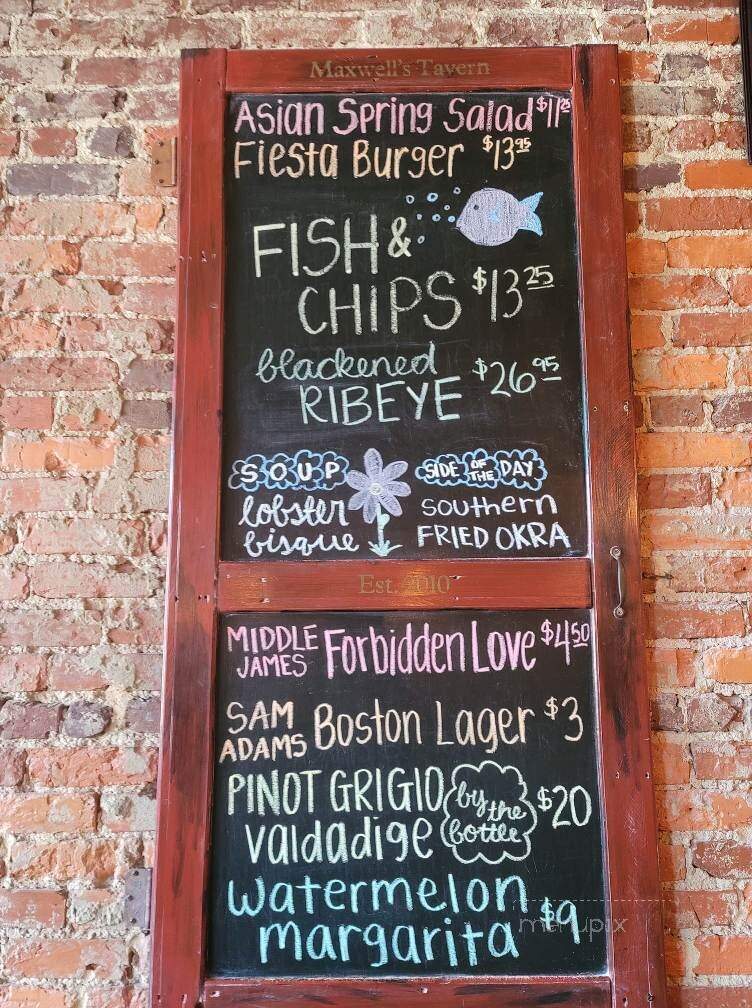 Maxwell's Tavern
Asian Spring Salad $11.25
Fiesta Burger $13.95
FISH &
CHIPS $13.25
blackened
RIBEYE $26.95
SOUP
lobster
bisque
SIDE OF THE DAY
southern
FRIED OKRA
Est. 2010
MIDDLE JAMES Forbidden Love $4.50
SAM ADAMS Boston Lager $3
PINOT GRIGIO
valdadige by the bottle $20
watermelon
margarita $9
menupix